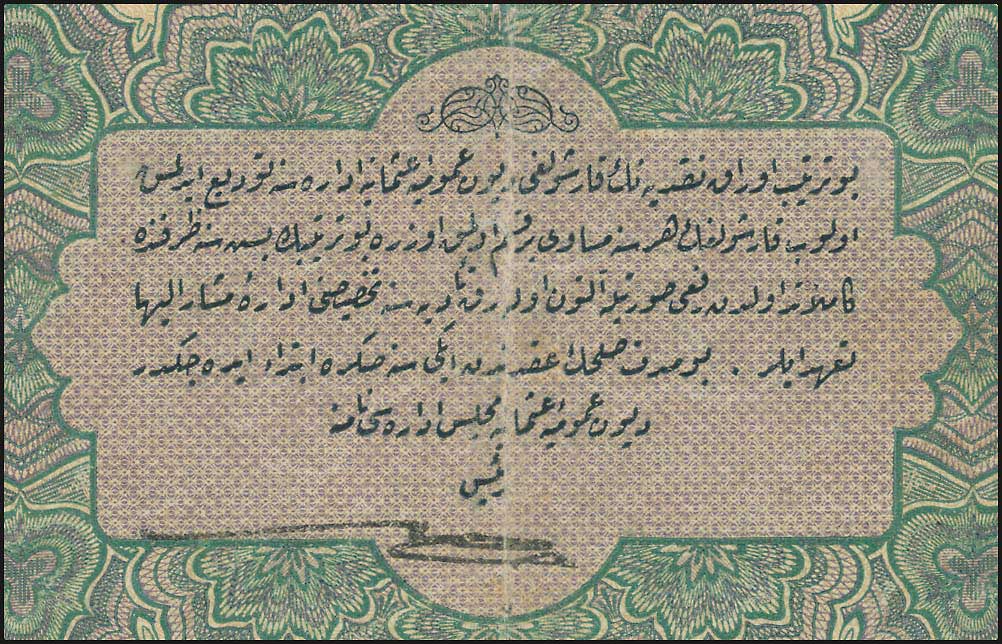 بو ترتیب اوراق نقدیه نك قارشولغی دیون عمومیه عثمانیه اداره سنه تودیع ایدلمش
اولوب قارشولغك هر سنه مساوی بر قسم اولمق اوزره بو ترتیبك بش سنه ظرفنده
كاملاً اولدن رفعی صورتیله آلتون اوله رق تأدیه سنه تخصیصنی ادارهٔ مشار الیها
تعهد ایلر . بو صرف صلحك عقدندن ایكی سنه صكره ابتدا ایده جكدر
دیون عمومیهٔ عثمانیه مجلس اداره سی نامنه
رئیس